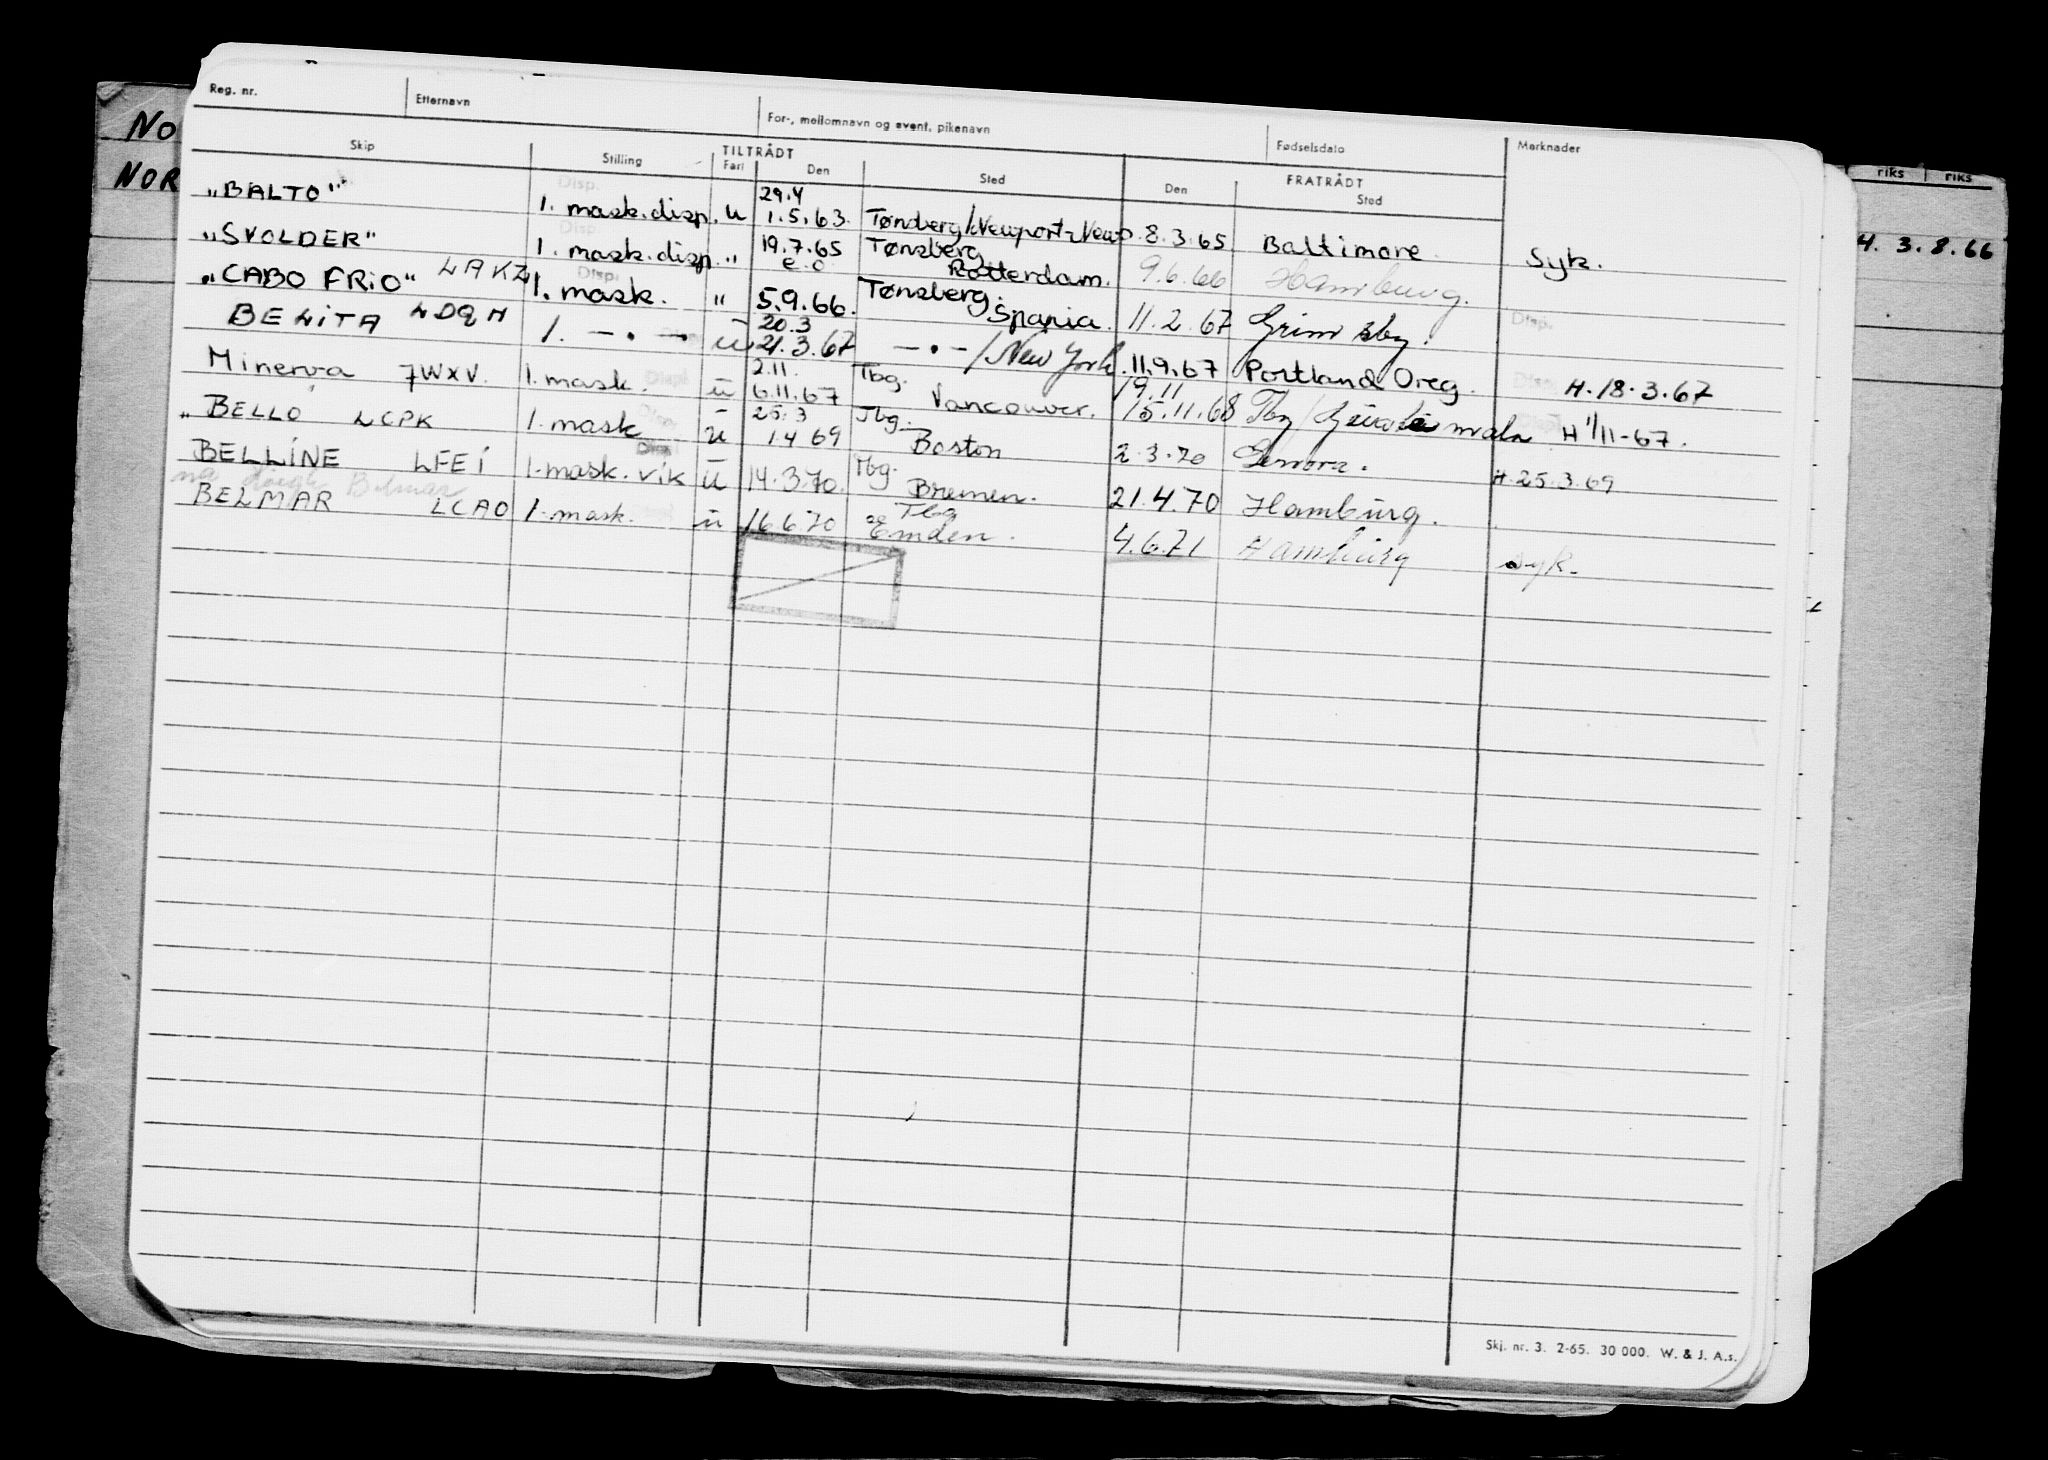 Reg. nr. Etternavn For-, mellomnavn og event. pikenavn Fødselsdato Merknader
Skip Stilling TILTRÅDT FRATRÅDT
Fart Den Sted Den Sted
NO
NOR
riks riks
4. 3. 8. 66
"BALTO" 1. mask. disp. u 29.4 1.5.63. Tønsberg/Newport-News 8.3.65 Baltimore Syk.
"SVOLDER" 1. mask. disp. " 19.7.65 e.o. Tønsberg Rotterdam. 9.6.66 Hamburg.
"CABO FRIO" LAKZ 1. mask. " 5.9.66. Tønsberg. Spania. 11.2.67 Grimsby.
BELITA LDQH 1. -•- u 20.3 21.3.67 -•-/New York. 11.9.67 Portland Oreg. H. 18.3.67
Minerva 7WXV. 1. mask. u 2.11. 6.11.67 Tbg. Vancouver. 19.11 15.11.68 Tbg/ H 1/11-67.
"BELLO LCPK 1. mask u 25.3 1.4 69 Tbg. Boston 2.3.70 H. 25.3.69
BELLINE LFEI 1. mask. vik u 14.3.70. Tbg. Bremen. 21.4.70 Hamburg.
Belmar
BELMAR LCAO 1. mask. u 16.6.70 Tbg Emden. 4.6.71 Hamburg Syk.
Skj. nr. 3. 2-65. 30 000. W. & J. A.s.